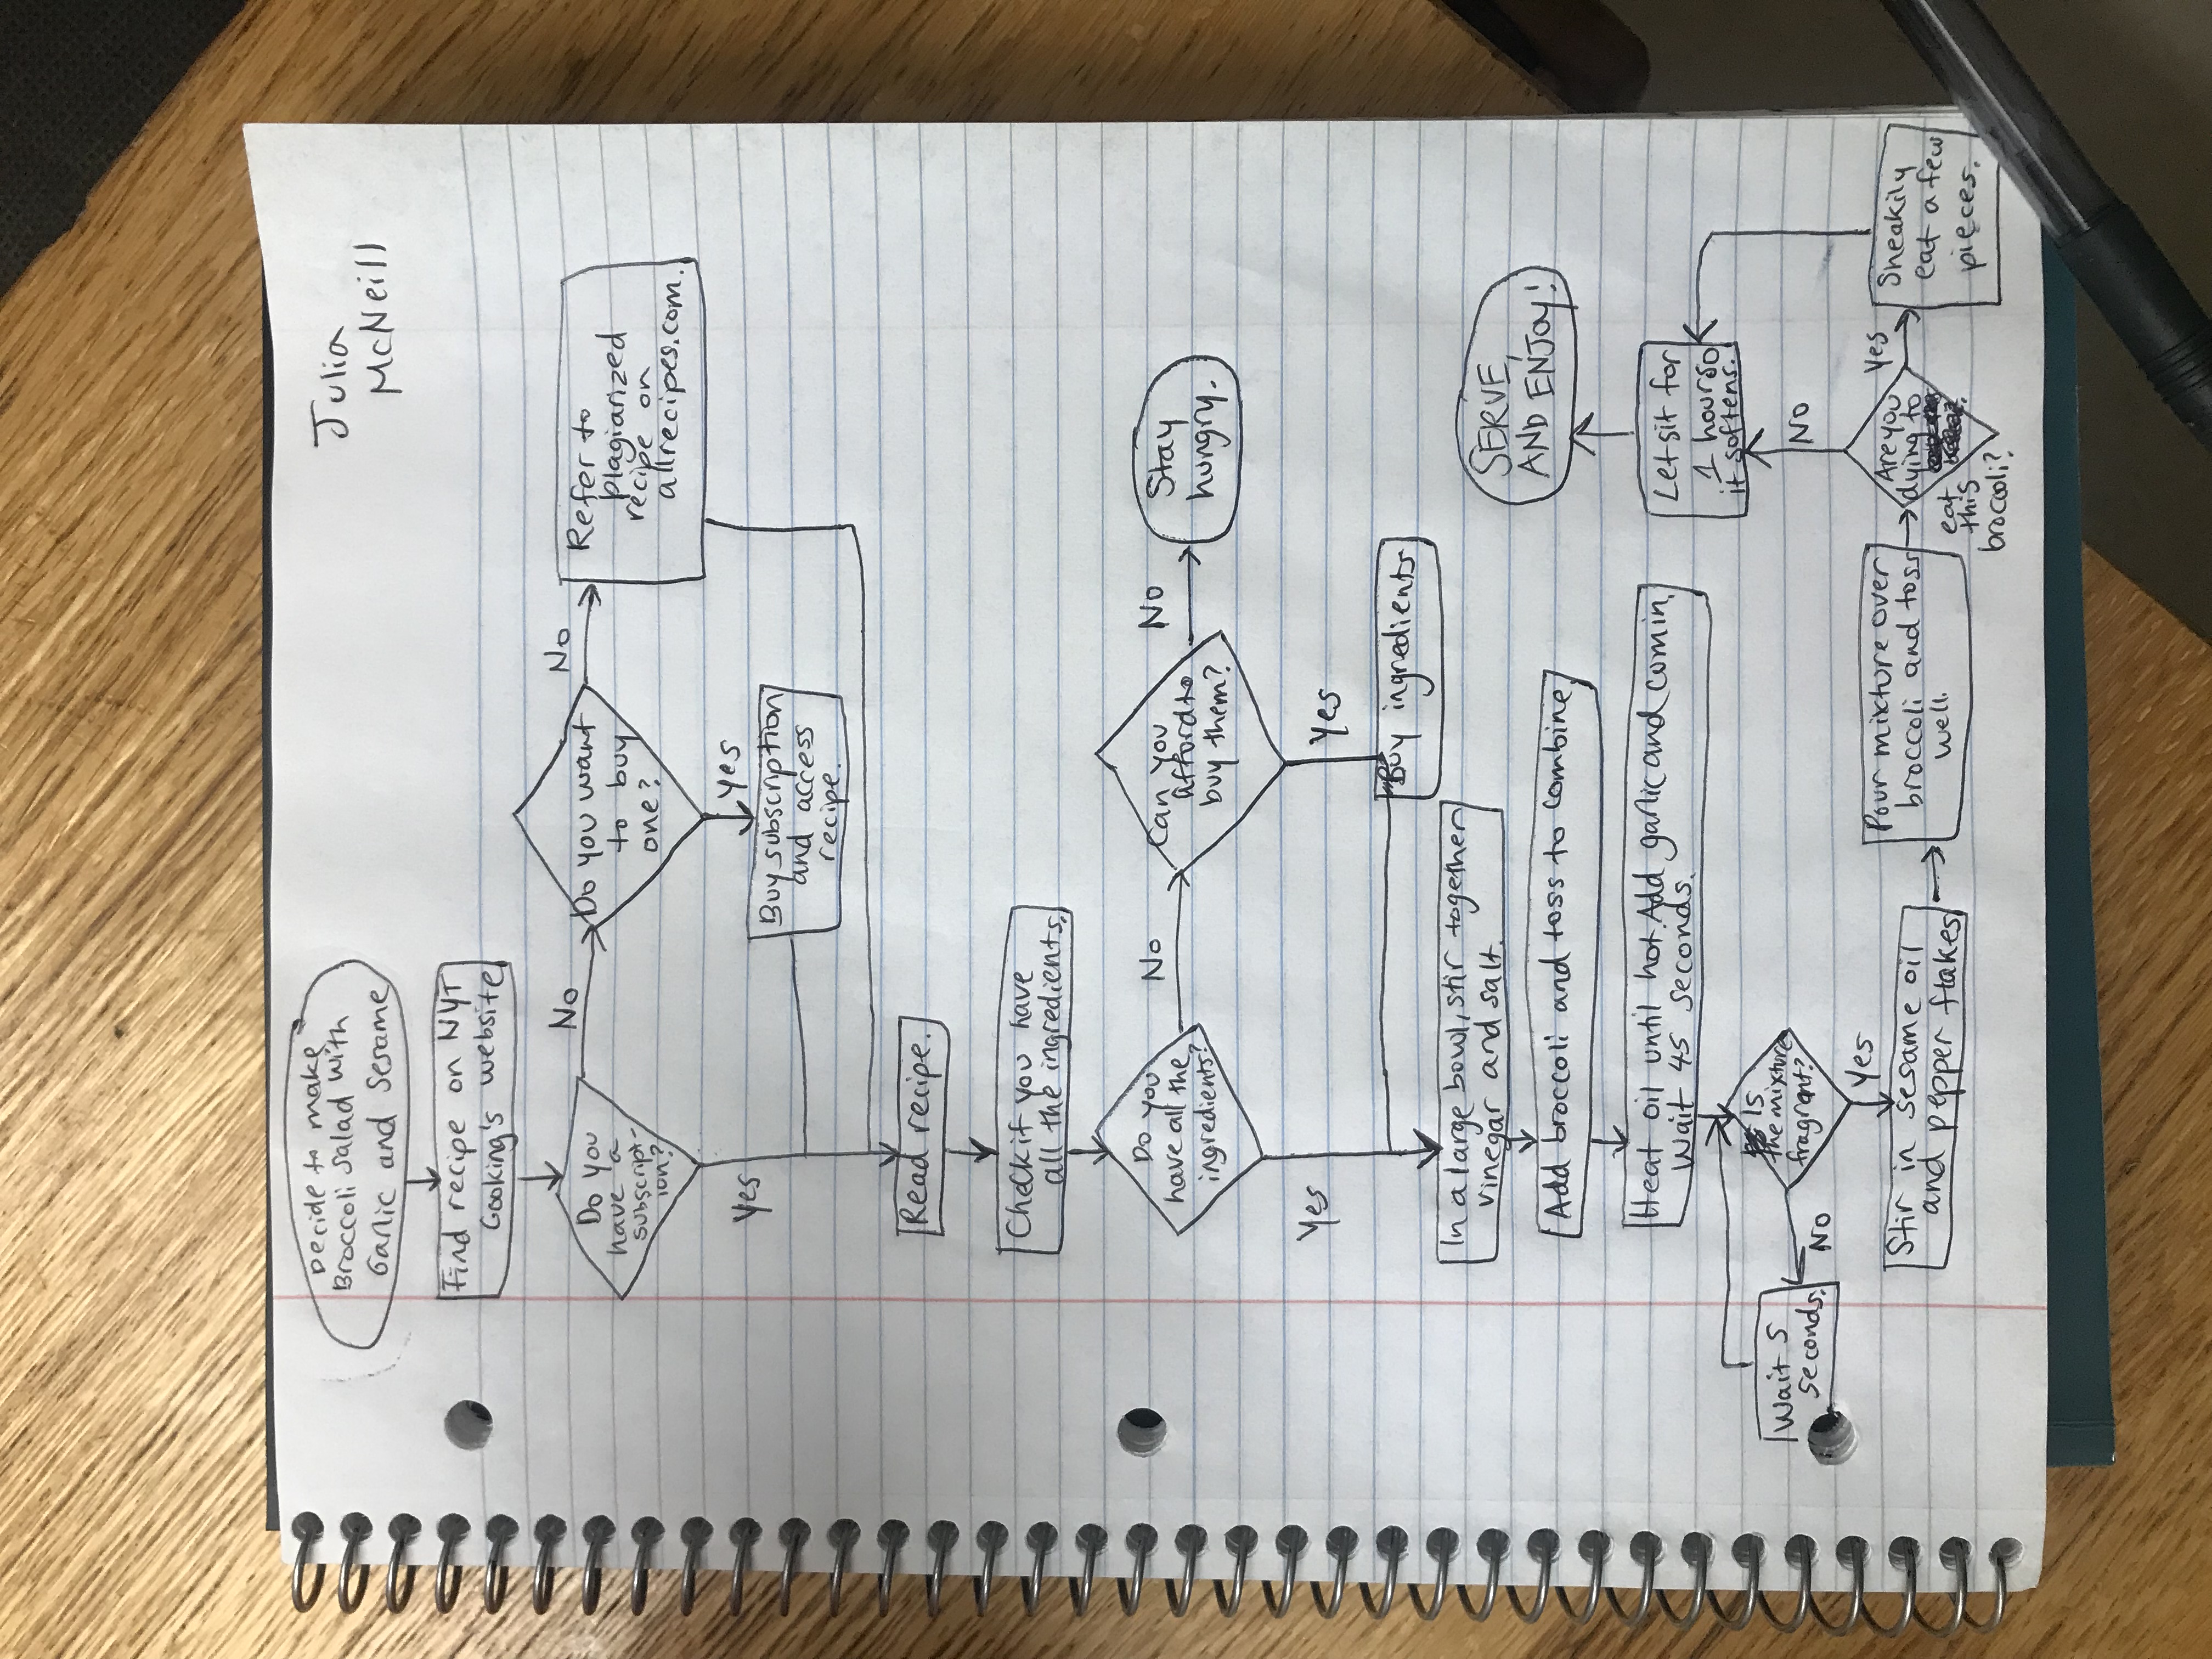 Julia
McNeill
Decide to make
Broccoli Salad with
Garlic and Sesame
Find recipe on NYT
Cooking's website
Do you
have a
subscript-
ion?
No
Do you want
to buy
one?
No
Refer to
plagiarized
recipe on
allrecipes.com.
Yes
Yes
Buy subscription
and access
recipe.
Read recipe.
Check if you have
all the ingredients.
Do you
have all the
ingredients?
No
Can you
afford to
buy them?
No
Stay
hungry.
Yes
Yes
Buy ingredients
In a large bowl, stir together
vinegar and salt.
Add broccoli and toss to combine.
Heat oil until hot. Add garlic and comin.
Wait 45 seconds.
Is
the mixture
fragrant?
No
Wait 5
seconds.
Yes
Stir in sesame oil
and pepper flakes
Pour mixture over
broccoli and toss
well.
Are you
dying to
eat
this
broccoli?
Yes
Sneakily
eat a few
pieces.
No
Let sit for
1 hour so
it softens.
SERVE,
AND ENJOY!